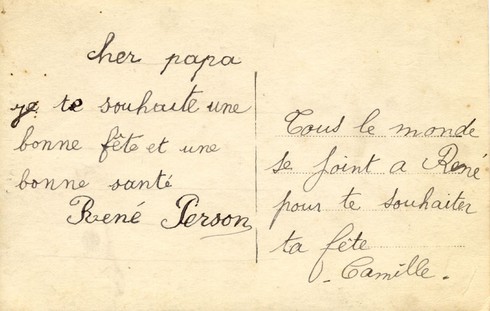 cher papa
je te souhaite une
bonne fête et une
bonne santé
René Person
Tous le monde
se joint a René
pour te souhaiter
ta fête
- Camille -